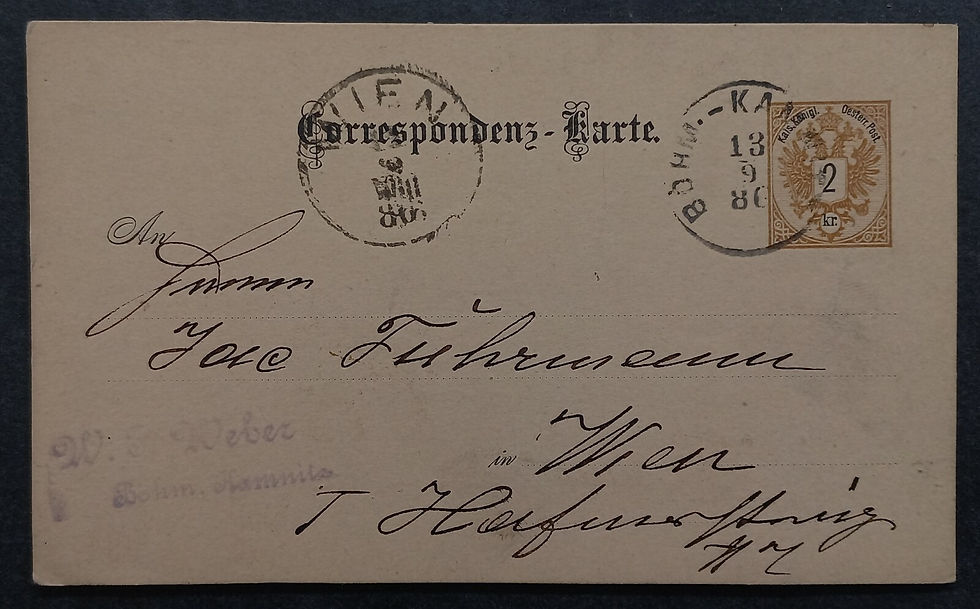 Correspondenz-Karte.
WIEN
86
BÖHM.-KA
13
9
86
Kais. Königl. Oesterr. Post.
2
kr.
An
Herrn
Jac Fuhrmann
in Wien
W. Weber
Böhm. Kamnitz
I Hafnersteig